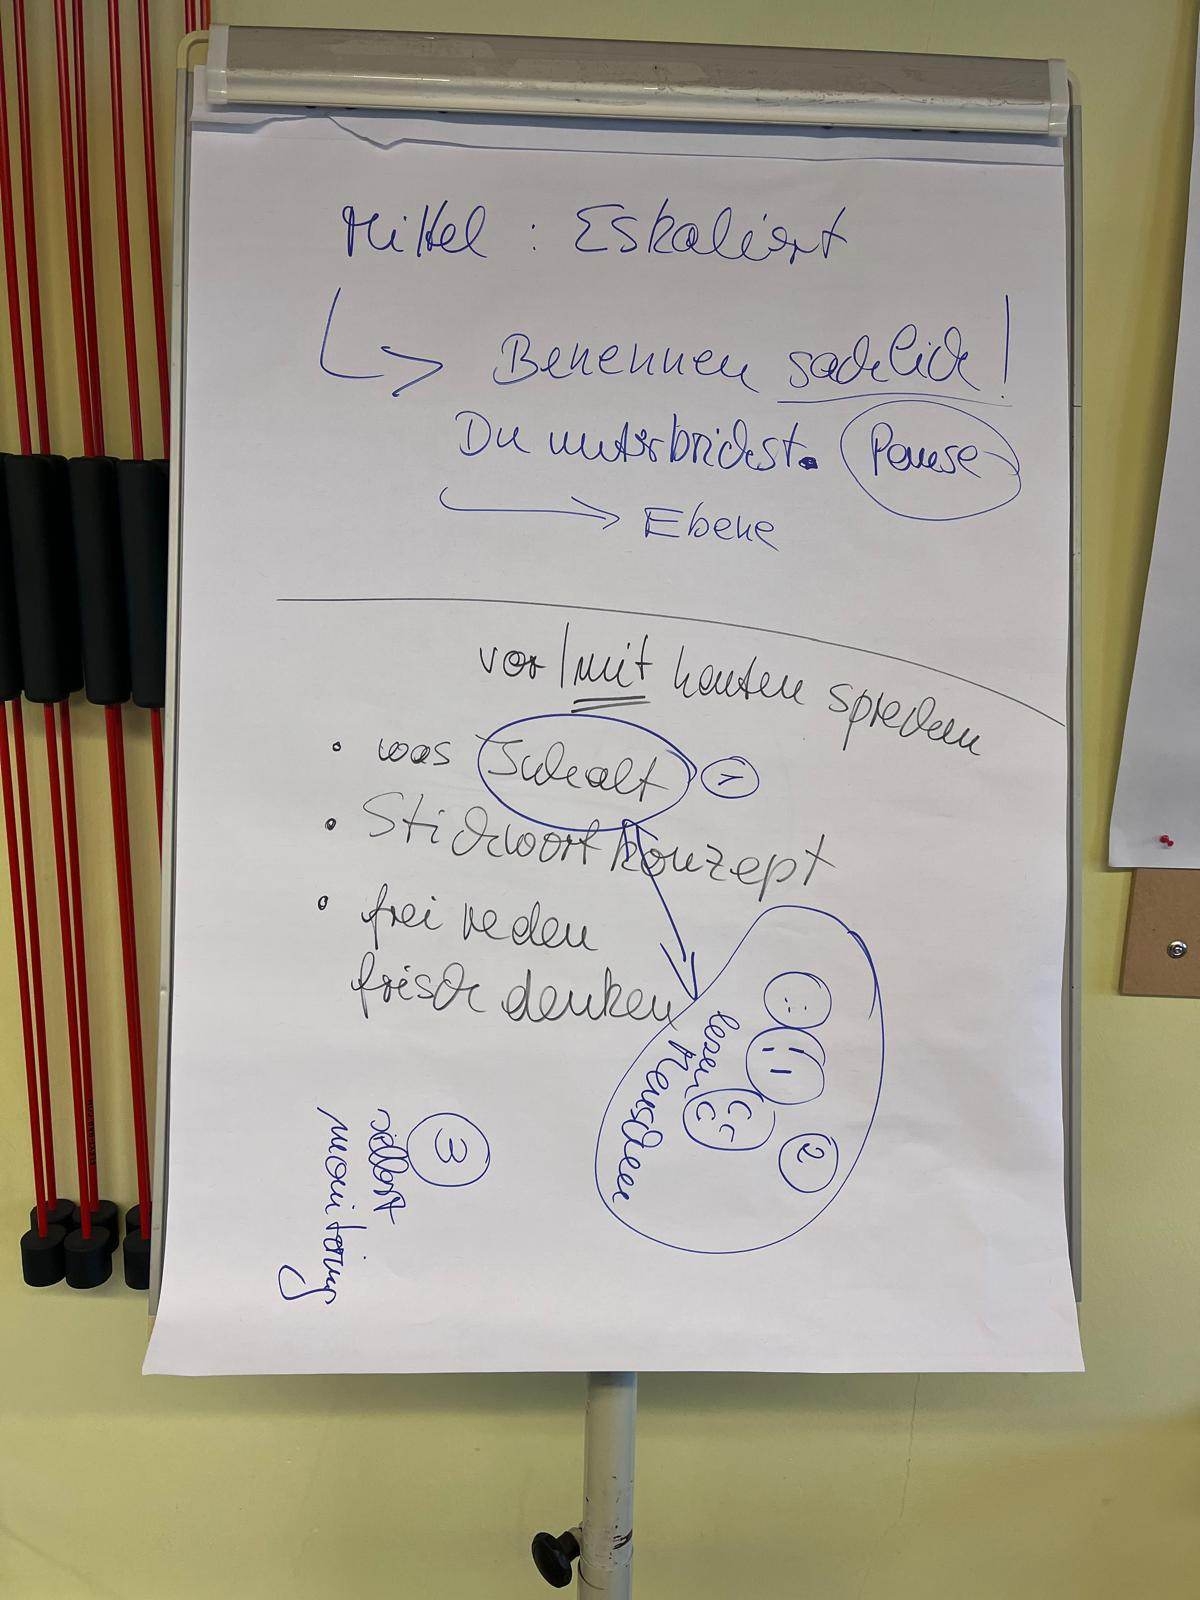 Mittel : Eskaliert
Benennen sachlich!
Du unterbrichst. Pause
Ebene
vor/mit Leuten sprechen
• was Inhalt 1
• Stichwortkonzept
• frei reden
frisch denken
lesen
Menschen
2
3
selbst
monitoring